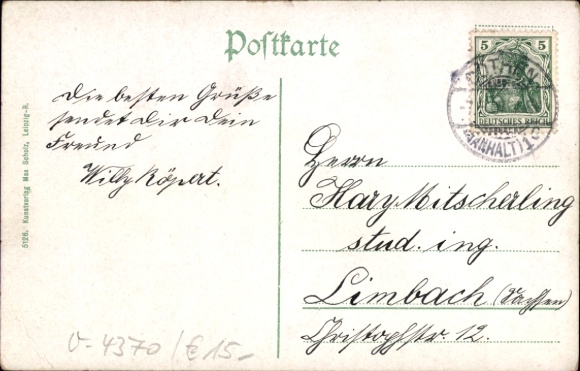 Postkarte
Die besten Grüße
sendet Dir Dein
Freund
Willy Köpert.
5 5
DEUTSCHES REICH
(ANHALT) 1
Herrn
Harry Mitscherling
stud. ing.
Limbach (Sachsen)
Christophstr. 12.
5126. Kunstverlag Max Scholz, Leipzig-R.
V-4370/€15-